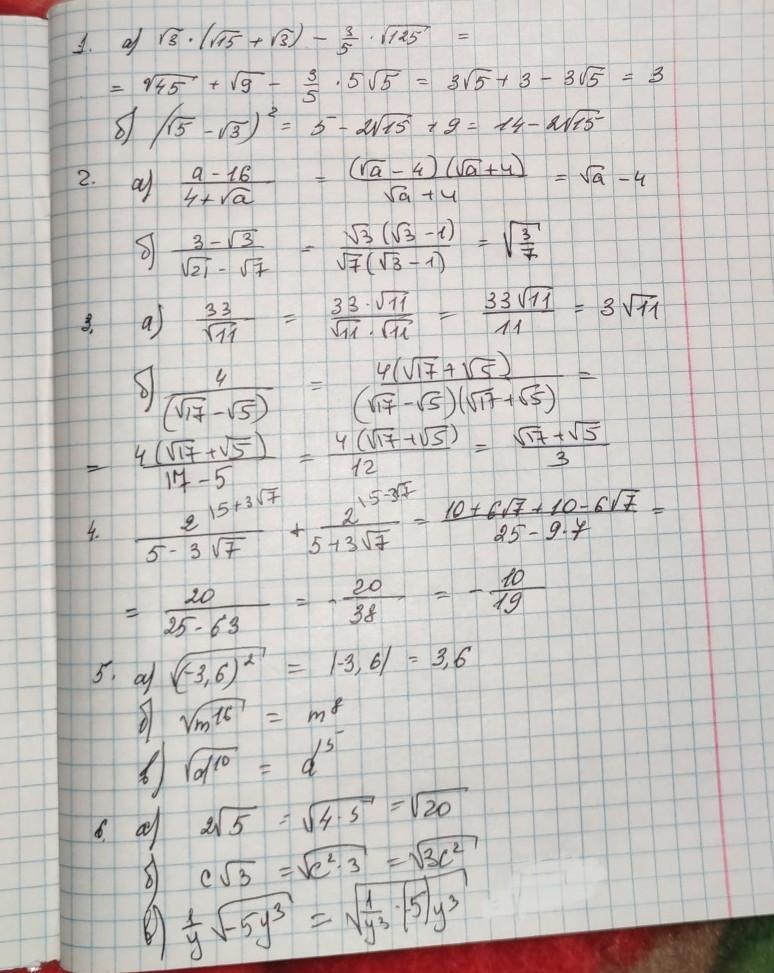 1. а) √3 · (√15 + √3) − 3/5 · √125 =
= √45 + √9 − 3/5 · 5√5 = 3√5 + 3 − 3√5 = 3
б) (√5 − √3)² = 5 − 2√15 + 9 = 14 − 2√15
2. а) (a − 16)/(4 + √a) = ((√a − 4)(√a + 4))/(√a + 4) = √a − 4
б) (3 − √3)/(√21 − √7) = (√3(√3 − 1))/(√7(√3 − 1)) = √(3/7)
3. а) 33/√11 = (33 · √11)/(√11 · √11) = 33√11/11 = 3√11
б) 4/(√17 − √5) = 4(√17 + √5)/((√17 − √5)(√17 + √5)) =
= 4(√17 + √5)/(17 − 5) = 4(√17 + √5)/12 = (√17 + √5)/3
4. 2/(5 − 3√7) |5 + 3√7 + 2/(5 + 3√7) |5 − 3√7 = (10 + 6√7 + 10 − 6√7)/(25 − 9·7) =
= 20/(25 − 63) = −20/38 = −10/19
5. а) √(−3,6)² = |−3,6| = 3,6
б) √m¹⁶ = m⁸
в) √d¹⁰ = d⁵
6. а) 2√5 = √(4·5) = √20
б) c√3 = √(c²·3) = √(3c²)
в) 1/y √(−5y³) = √(1/y³ · (−5)y³)